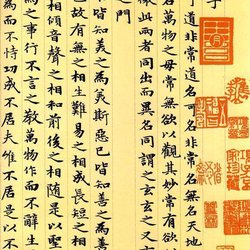 子
道非常道名可名非常名無名天地
名萬物之母常無欲以觀其妙常有欲
徼此兩者同出而異名同謂之玄玄之又
之門
皆知美之為美斯惡已皆知善之為善
已故有無之相生難易之相成長短之相
相傾音聲之相和前後之相隨是以聖
為之事行不言之教萬物作而不辭生
為而不恃功成不居夫惟不居是以不